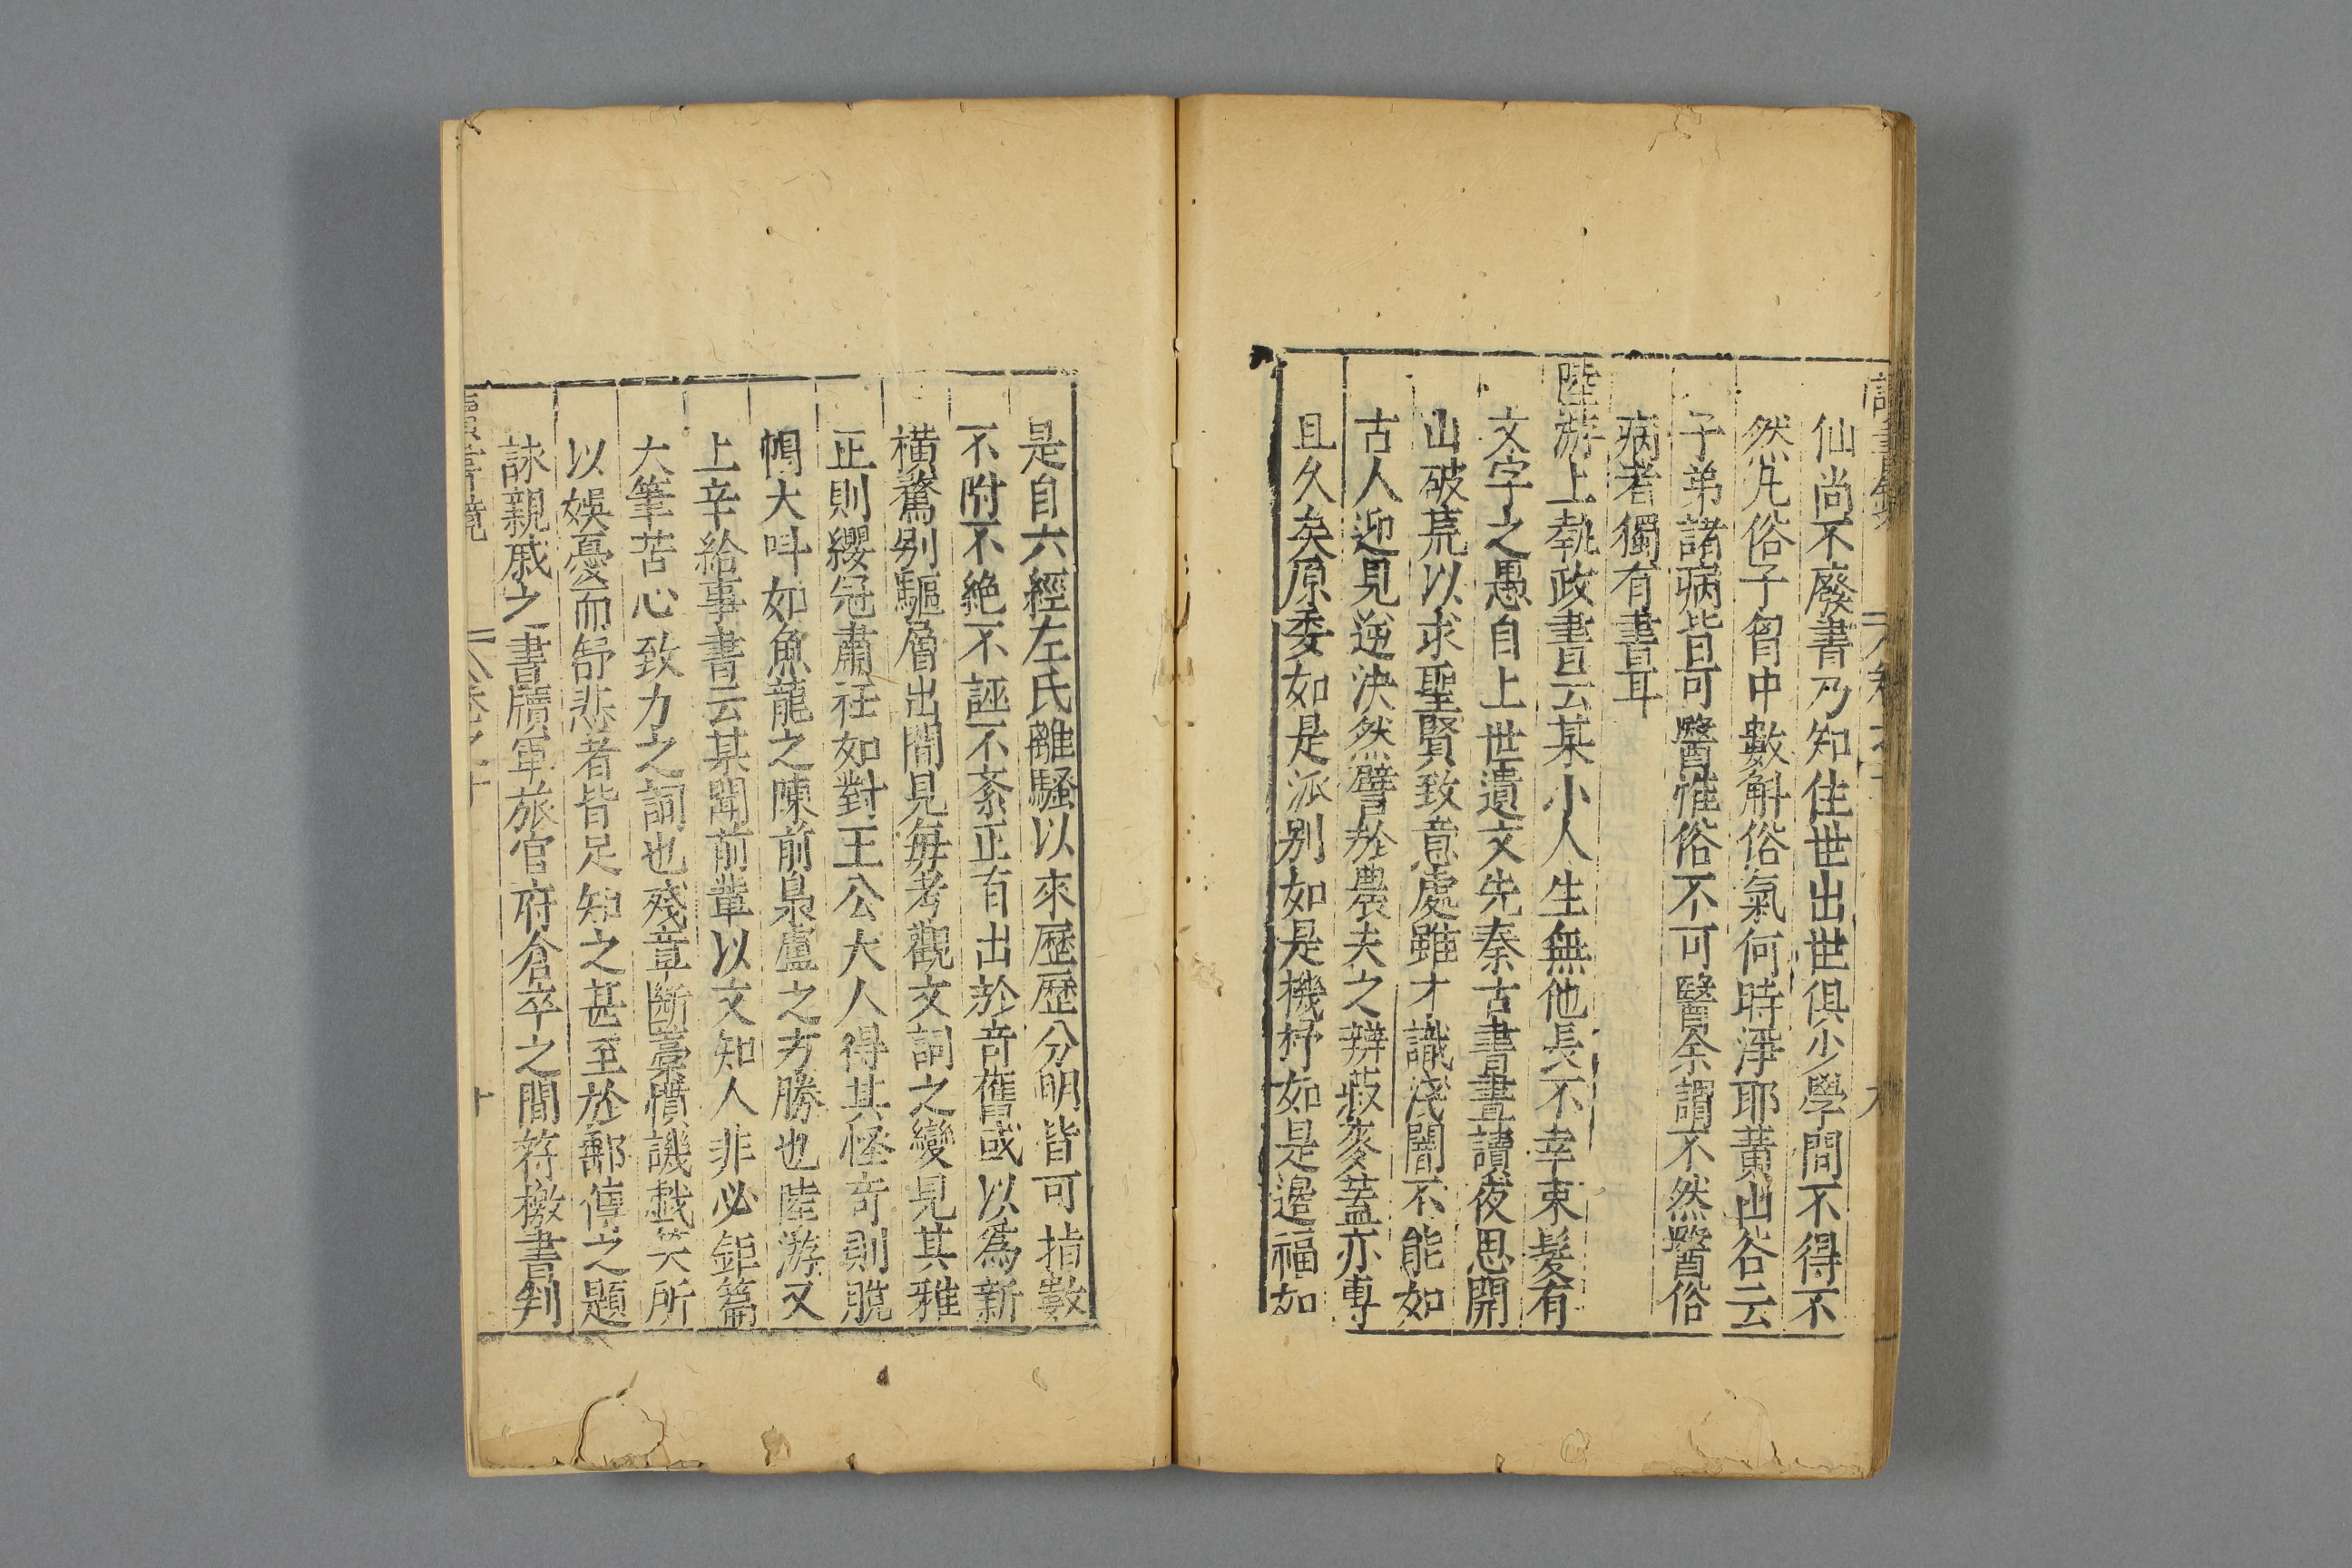 仙尚不廢書乃知住世出世俱少學問不得不
然凡俗子胷中數斛俗氣何時淨耶黃山谷云
子弟諸病皆可醫惟俗不可醫余謂不然醫俗
病者獨有書耳
陸游上執政書云某小人生無他長不幸束髮有
文字之愚自上世遺文先秦古書晝讀夜思開
山破荒以求聖賢致意處雖才識淺闇不能如
古人迎見逆決然譬於農夫之辨菽麥蓋亦專
且久矣原委如是派别如是機杼如是邊幅如
是自六經左氏離騷以來歷歷分明皆可指數
不附不絶不誣不紊正有出於奇舊或以爲新
橫騖别驅層出間見每考觀文詞之變見其雅
正則纓冠肅衽如對王公大人得其怪奇則脫
帽大叫如魚龍之陳前梟盧之方勝也陸游又
上辛給事書云某聞前輩以文知人非必鉅篇
大筆苦心致力之詞也殘章斷藁憤譏戲笑所
以娛憂而舒悲者皆足知之甚至於郵傳之題
詠親戚之書牘軍旅官府倉卒之間符檄書判
讀書鏡 卷之十 十